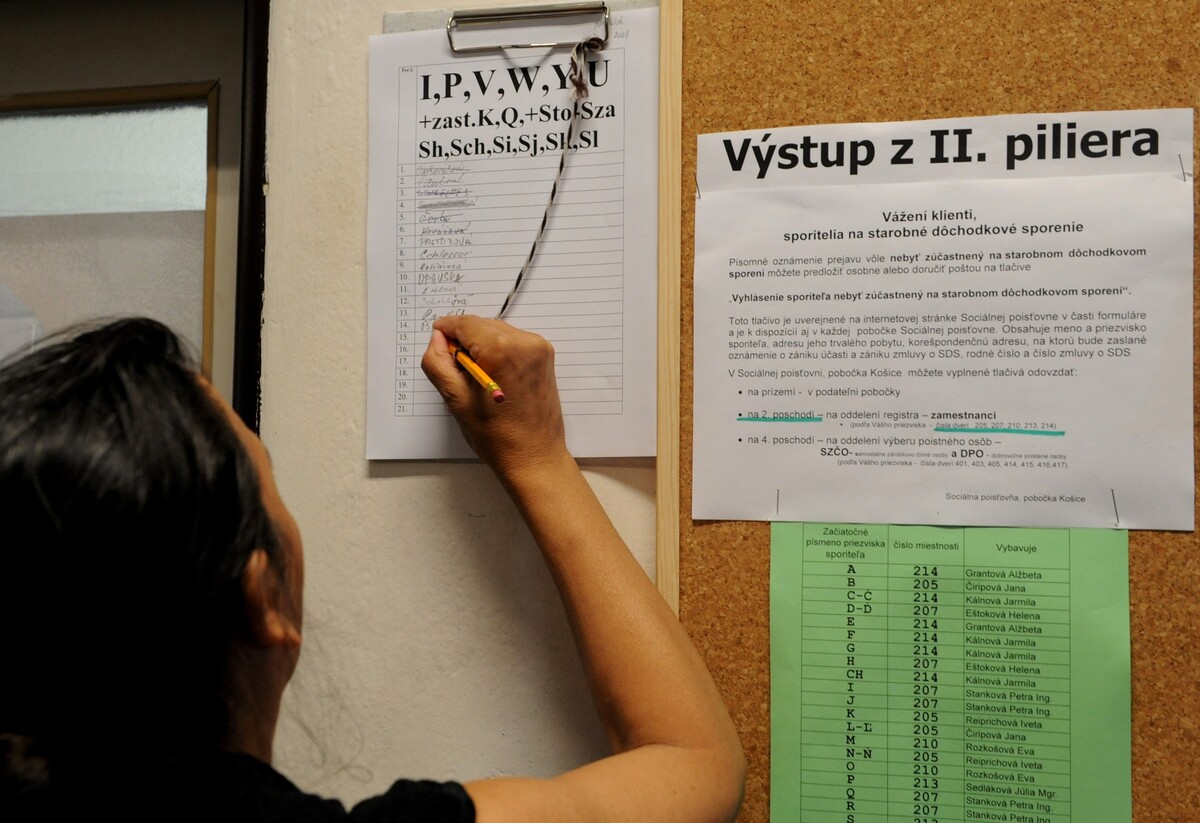 Por.č.
I,P,V,W,Y,U
+zast.K,Q,+Sto-Sza
Sh,Sch,Si,Sj,Sk,Sl
1.
2.
3.
4.
5.
6.
7.
8.
9.
10.
11.
12.
13.
14.
15.
16.
17.
18.
19.
20.
21.
Výstup z II. piliera
Vážení klienti,
sporitelia na starobné dôchodkové sporenie
Písomné oznámenie prejavu vôle nebyť zúčastnený na starobnom dôchodkovom
sporení môžete predložiť osobne alebo doručiť poštou na tlačive
„Vyhlásenie sporiteľa nebyť zúčastnený na starobnom dôchodkovom sporení“.
Toto tlačivo je uverejnené na internetovej stránke Sociálnej poisťovne v časti formuláre
a je k dispozícii aj v každej pobočke Sociálnej poisťovne. Obsahuje meno a priezvisko
sporiteľa, adresu jeho trvalého pobytu, korešpondenčnú adresu, na ktorú bude zaslané
oznámenie o zániku účasti a zániku zmluvy o SDS, rodné číslo a číslo zmluvy o SDS.
V Sociálnej poisťovni, pobočka Košice môžete vyplnené tlačivá odovzdať:
• na prízemí - v podateľni pobočky
• na 2. poschodí – na oddelení registra – zamestnanci
• (podľa Vášho priezviska - čísla dverí 205, 207, 210, 213, 214)
• na 4. poschodí – na oddelení výberu poistného osôb –
SZČO- samostatne zárobkovo činné osoby a DPO - dobrovoľne poistené osoby
(podľa Vášho priezviska - čísla dverí 401, 403, 405, 414, 415, 416,417)
Sociálna poisťovňa, pobočka Košice
Začiatočné písmeno priezviska sporiteľa číslo miestnosti Vybavuje
A 214 Grantová Alžbeta
B 205 Čiripová Jana
C-Č 214 Kálnová Jarmila
D-Ď 207 Eštoková Helena
E 214 Grantová Alžbeta
F 214 Kálnová Jarmila
G 214 Kálnová Jarmila
H 207 Eštoková Helena
CH 214 Kálnová Jarmila
I 207 Stanková Petra Ing.
J 207 Stanková Petra Ing.
K 205 Reiprichová Iveta
L-Ľ 205 Čiripová Jana
M 210 Rozkošová Eva
N-Ň 205 Reiprichová Iveta
O 210 Rozkošová Eva
P 213 Sedláková Júlia Mgr.
Q 207 Stanková Petra Ing.
R 207 Stanková Petra Ing.
S